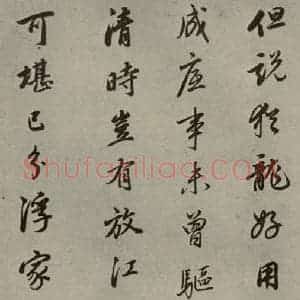 但説犹龍好用
成虚事未曾驅
清時豈有放江
可堪已分浮家
Shufaziliao.COM